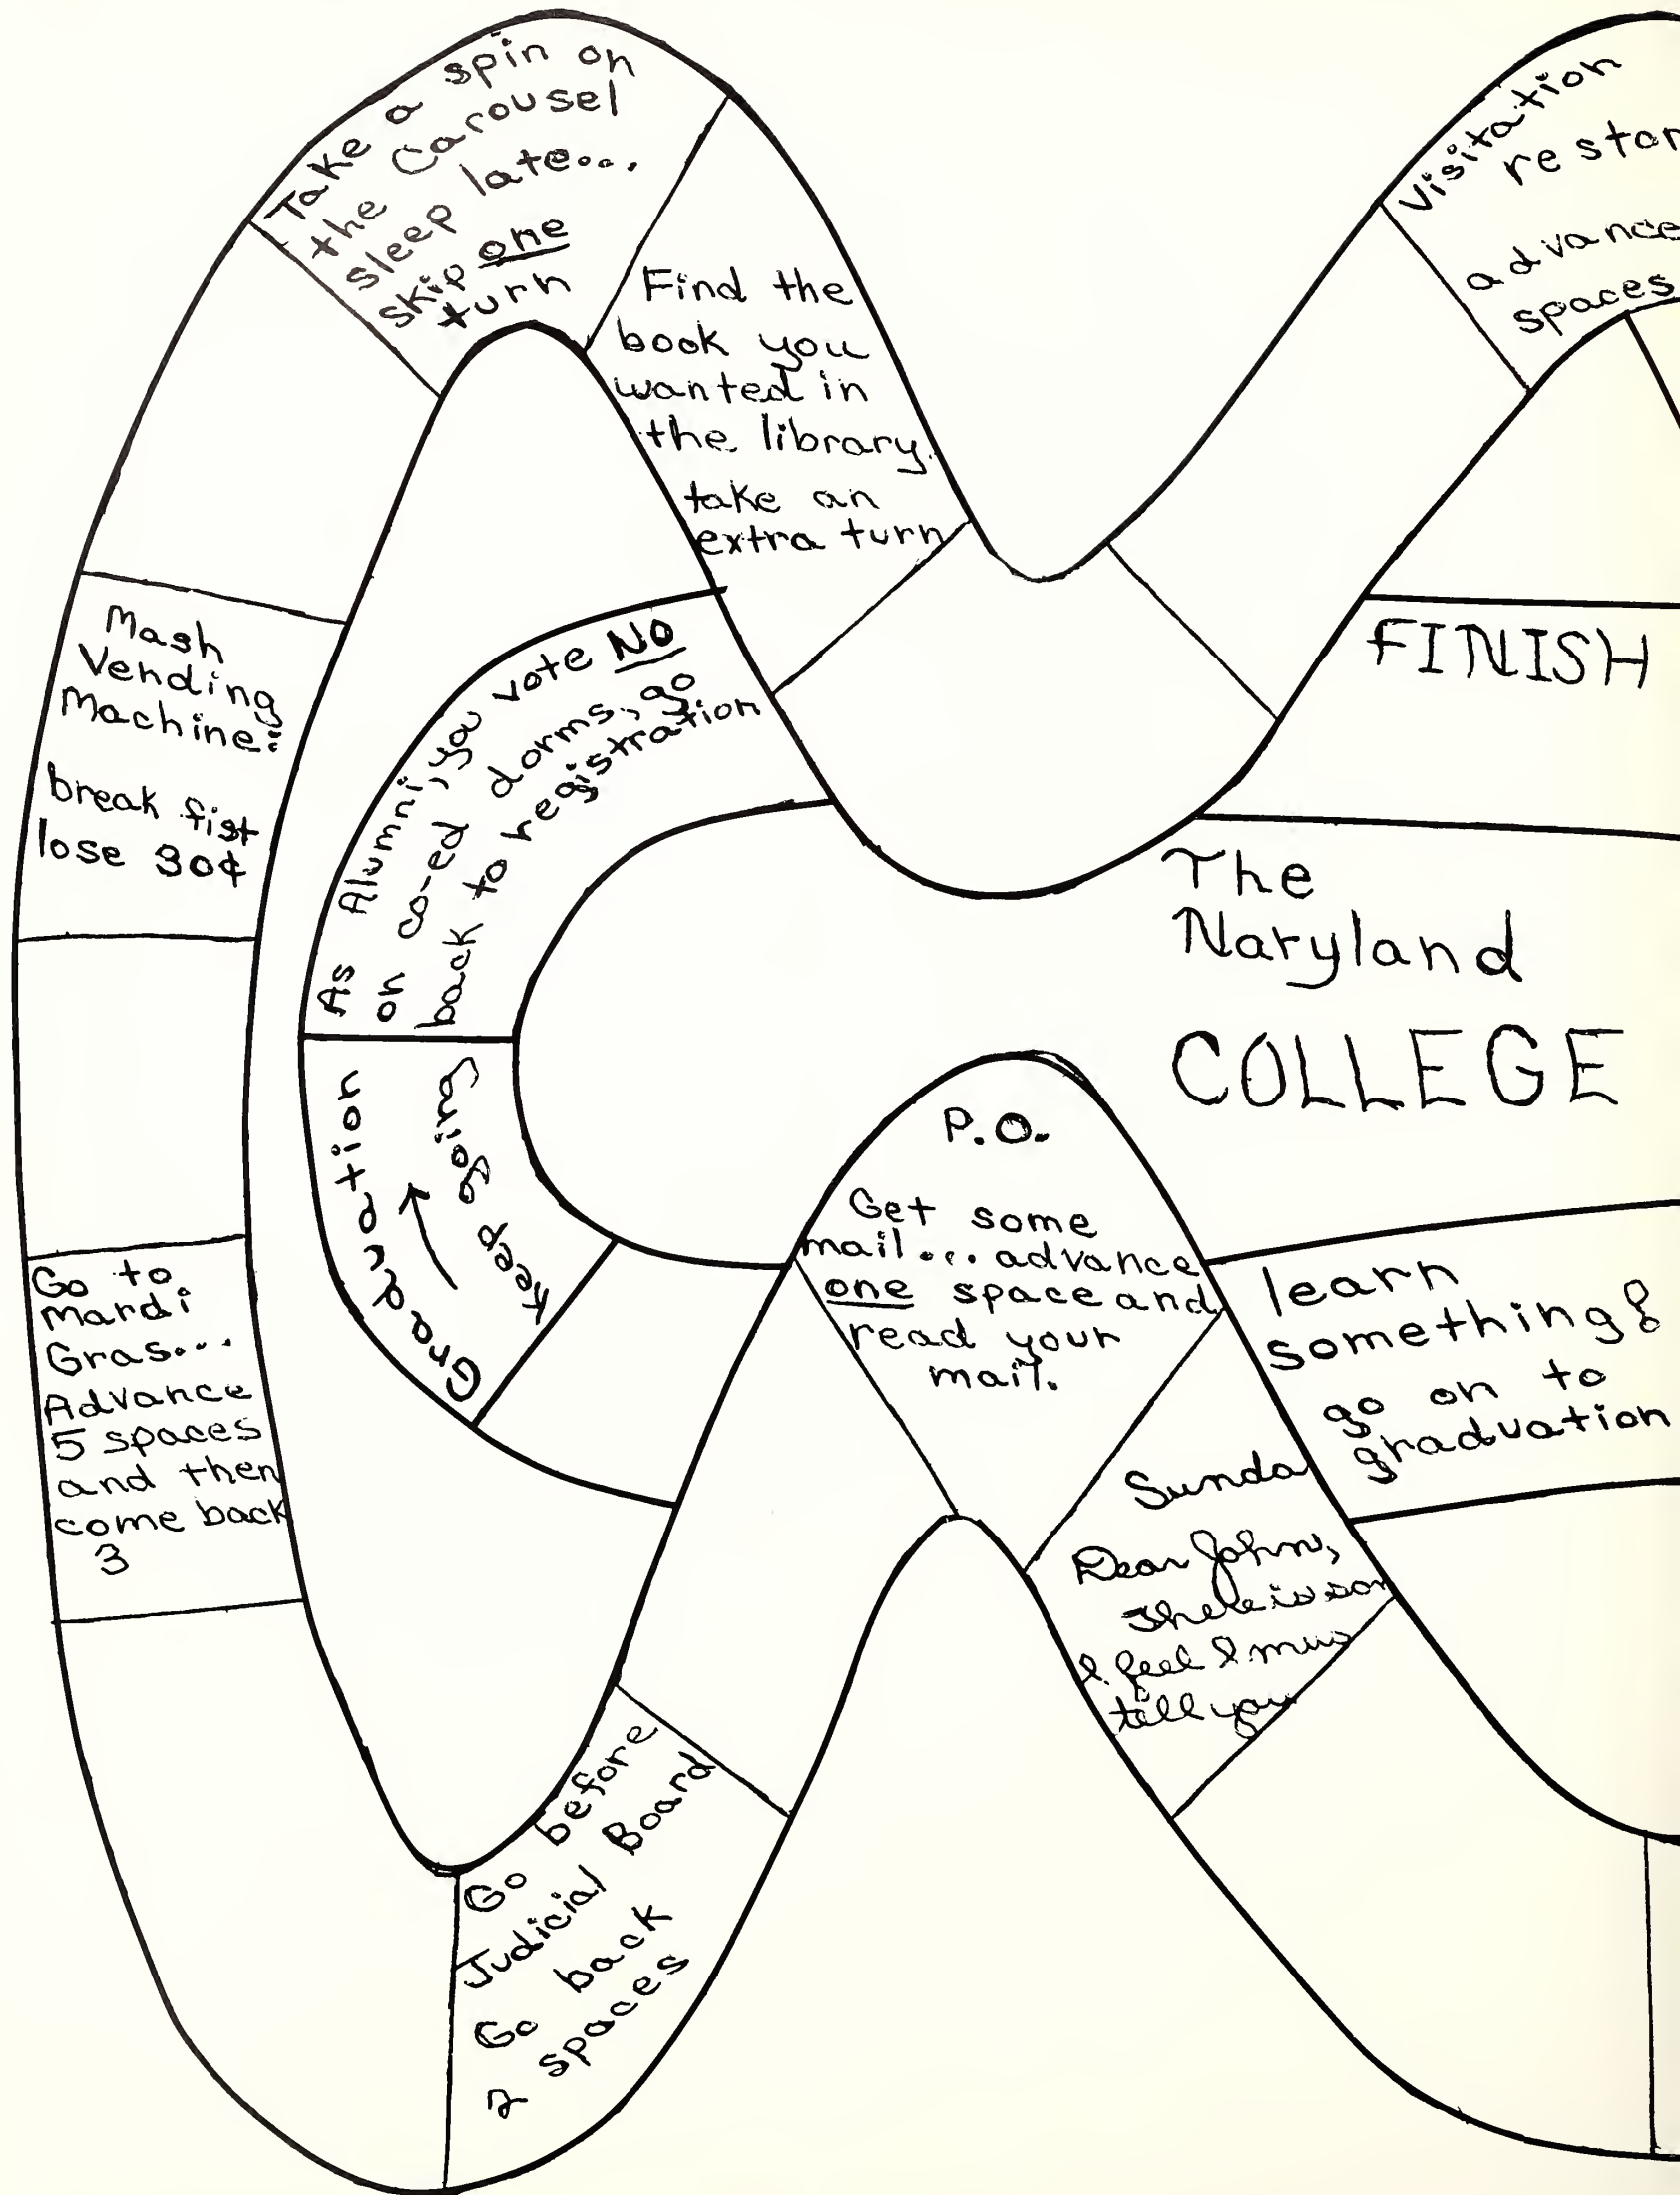 Take a spin on
the Carousel
sleep late...
skip one
turn
Find the
book you
wanted in
the library.
take an
extra turn
Visitation
restor
advance
spaces
FINISH
Mash
Vending
Machine:
break fist
lose 30¢
As Alumni, you vote NO
on co-ed dorms, go
back to registration
The
Naryland
COLLEGE
Graduation
keep going
P.O.
Get some
mail... advance
one space and
read your
mail.
learn
something!
go on to
graduation
Go to
Mardi
Gras...
Advance
5 spaces
and then
come back
3
Sunda
Dear John,
There is som
I feel I mus
tell you
Go before
Judicial Board
Go back
2 spaces